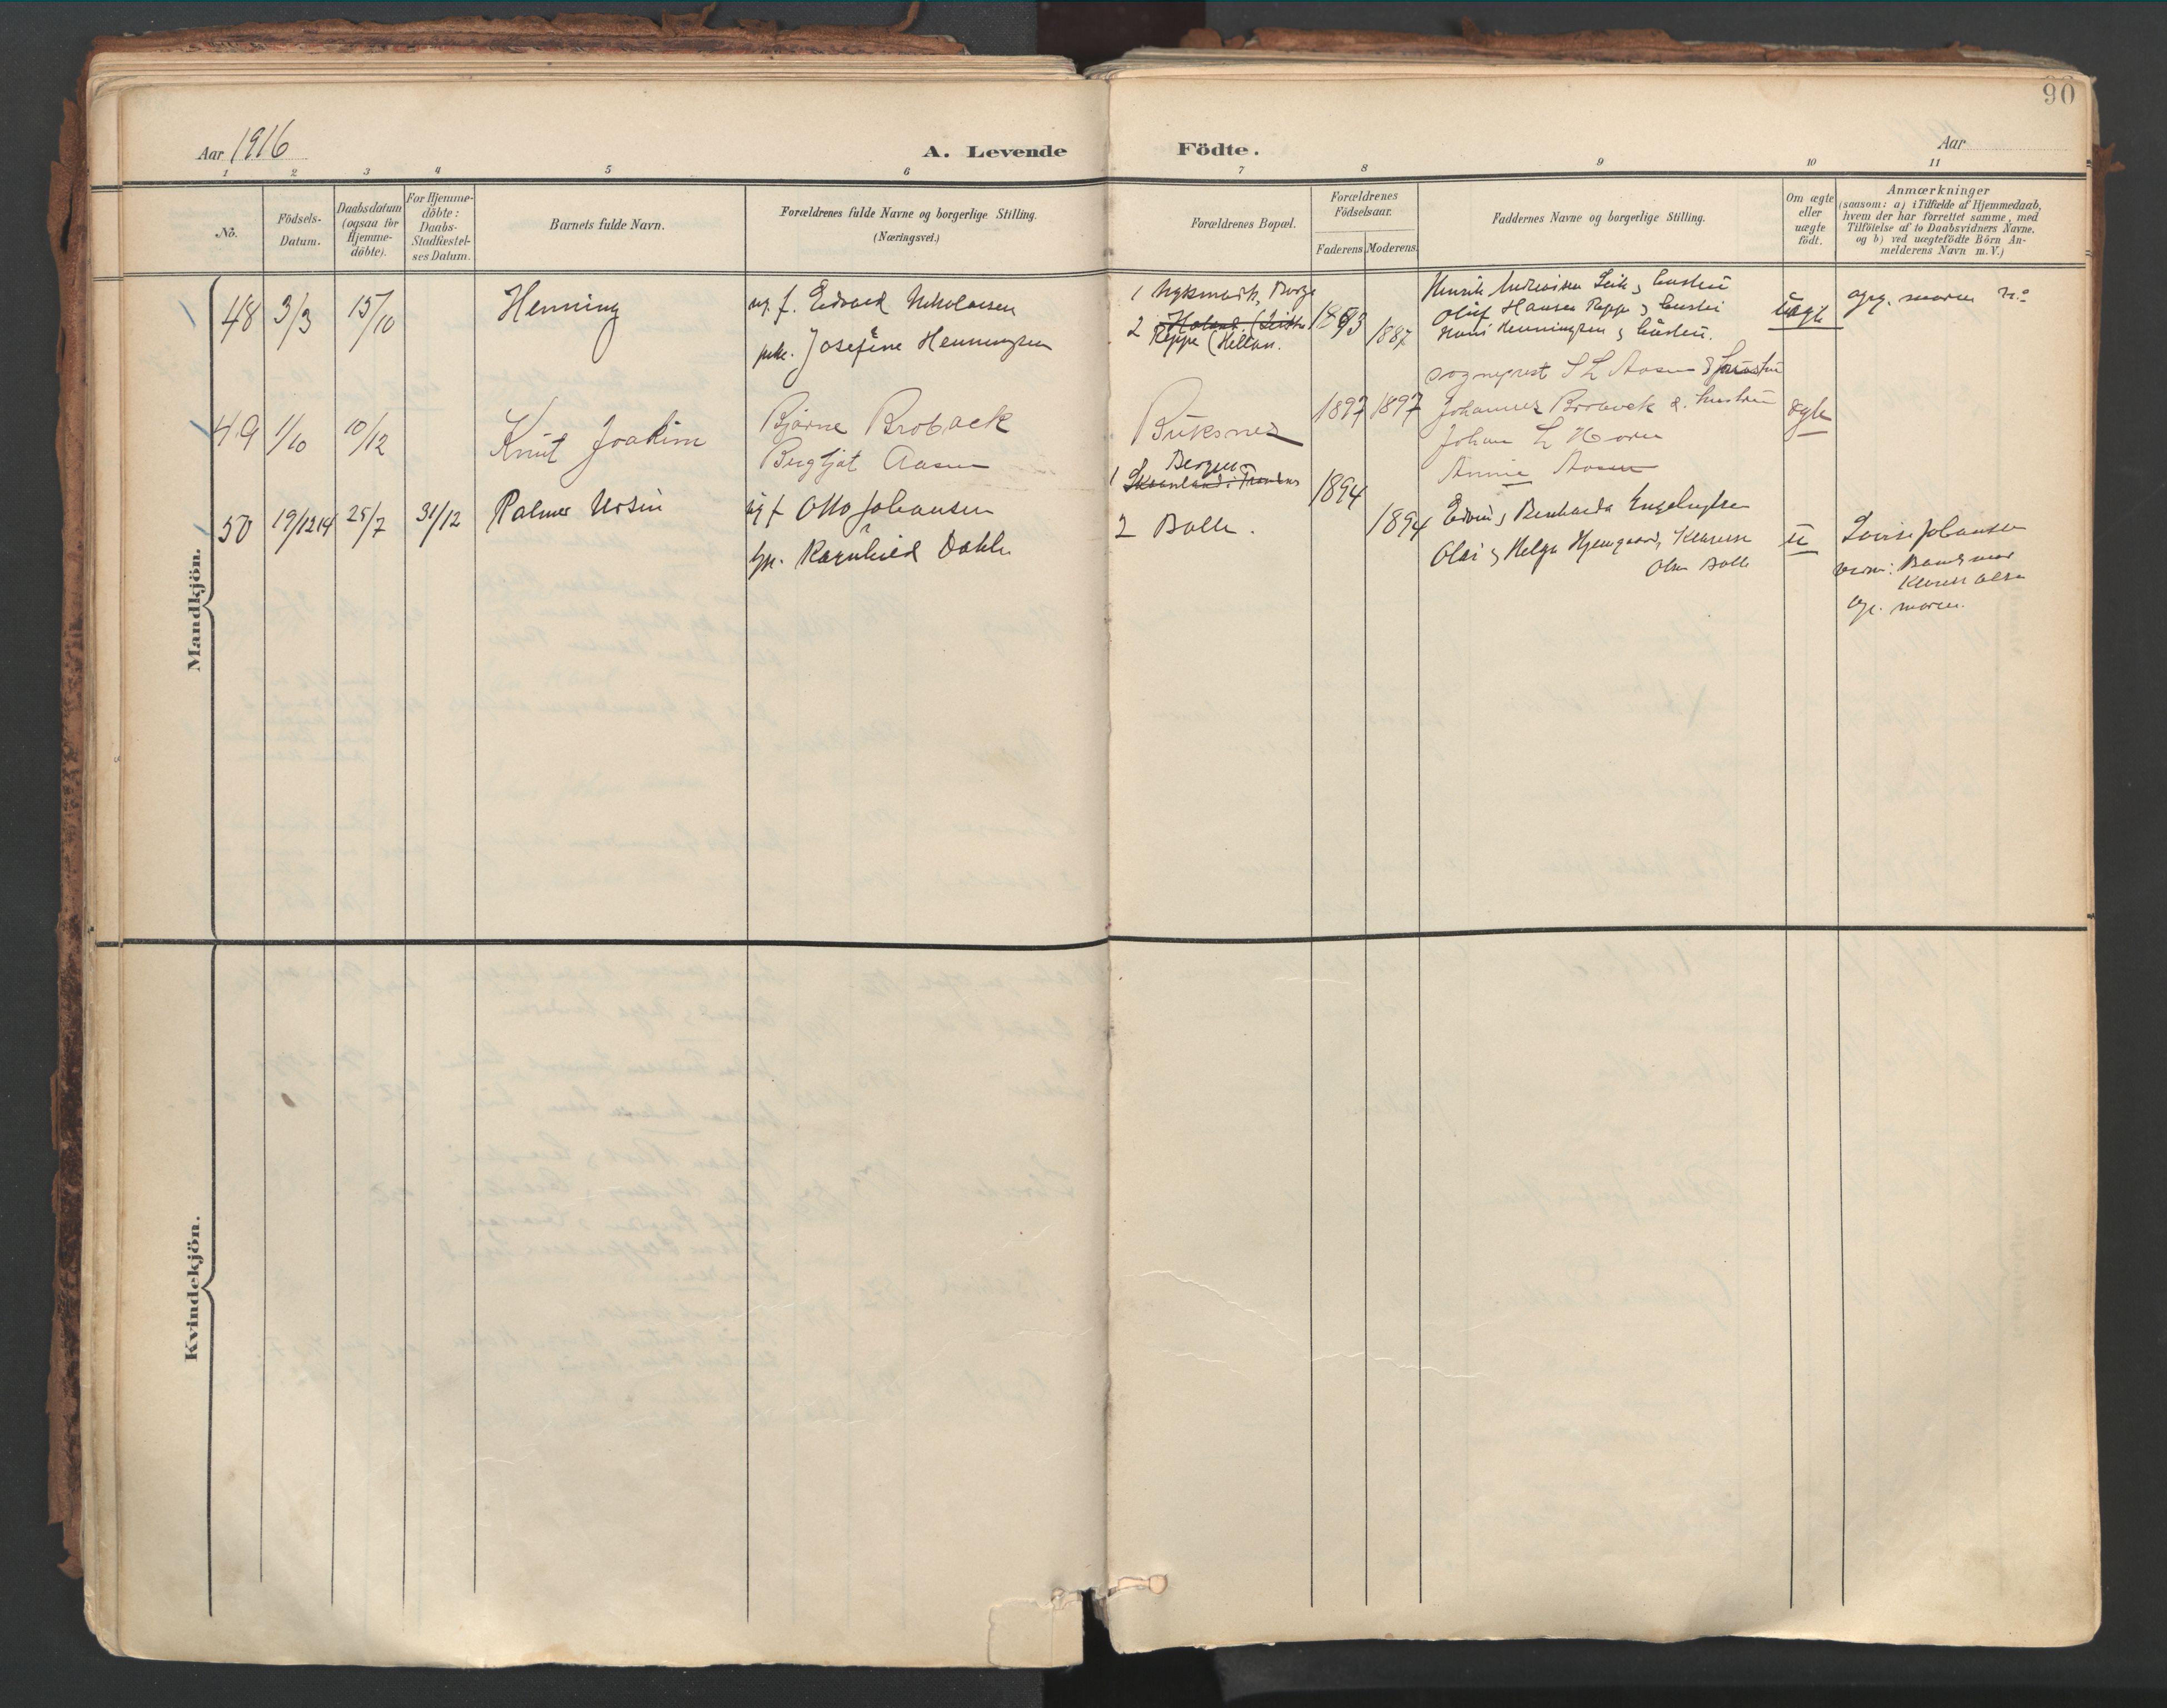 90
Aar 1916
A. Levende Födte.
Aar
1 2 3 4 5 6 7 8 9 10 11
No.
Födsels-
Datum.
Daabsdatum
(ogsaa for
Hjemme-
döbte).
For Hjemme-
döbte:
Daabs-
Stadfæstel-
ses Datum.
Barnets fulde Navn.
Forældrenes fulde Navne og borgerlige Stilling.
(Næringsvei.)
Forældrenes Bopæl.
Forældrenes
Födselsaar.
Faderens Moderens
Faddernes Navne og borgerlige Stilling.
Om ægte
eller
uægte
födt.
Anmærkninger
(saasom: a) i Tilfælde af Hjemmedaab,
hvem der har forrettet samme, med
Tilföielse af to Daabsvidners Navne.
og b) ved uægtefödte Börn An-
melderens Navn m.V.)
Mandkjön.
48 3/3 15/10 Henning
ug. f. Edvard Nikolaisen
pike. Josefine Henningsen
1 Nykmark, Borge
2
Reppe
1893
1887
Henrik Andreassen Leik & hustru
Oluf Hansen Reppe & hustru
Henningsen & hustru.
uægte
opg. moren
49 1/10 10/12 Knut Joakim
Bjarne Broback
Bergljot Aasen
Buksnes
1897 1897
Sogneprest S L Aasen & hustru
Johannes Broback & hustru
Johan L Horn
Annie Aasen
ægte
50 19/12 14 25/7 31/12 Palmer Ursin
ug f Otto Johansen
Ragnhild Dahle
1 Bergen
2 Balle.
1894
1894
Edvin & Benharda Engebrigtsen
Olai & Helga Hjemgaard,
Olsen Balle
u
Lovise Johansen
Olsen
opg. moren.
Kvindekjön.